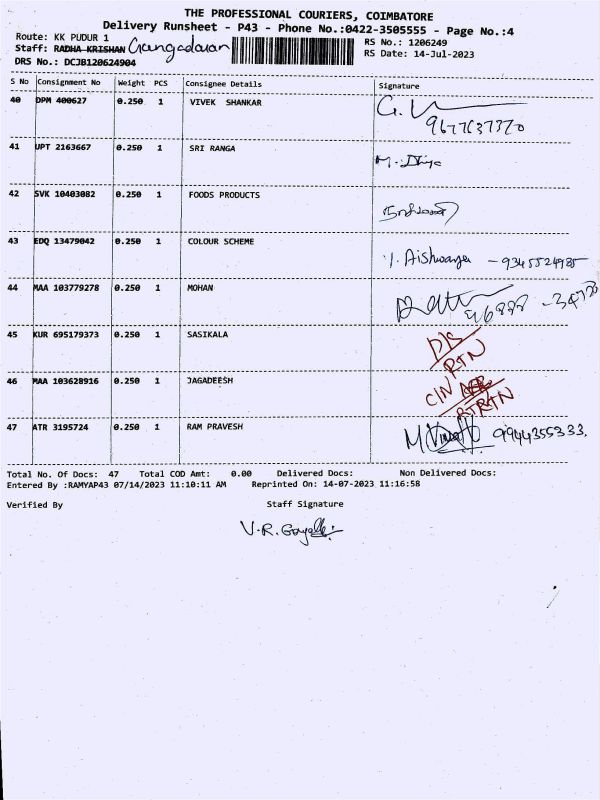 THE PROFESSIONAL COURIERS, COIMBATORE
Delivery Runsheet - P43 - Phone No.:0422-3505555 - Page No.:4
Route: KK PUDUR 1
RS No.: 1206249
Staff: RADHA KRISHAN Gangadaran
RS Date: 14-Jul-2023
DRS No.: DCJB120624904
S No Consignment No Weight PCS Consignee Details Signature
40 DPM 400627 0.250 1 VIVEK SHANKAR
9677637370
41 UPT 2163667 0.250 1 SRI RANGA M. Divya
42 SVK 10403082 0.250 1 FOODS PRODUCTS
43 EDQ 13479042 0.250 1 COLOUR SCHEME I. Aishwarya - 9345524985
44 MAA 103779278 0.250 1 MOHAN
45 KUR 695179373 0.250 1 SASIKALA D/S
RTN
46 MAA 103628916 0.250 1 JAGADEESH CIN
RTRTN
47 ATR 3195724 0.250 1 RAM PRAVESH 9944355333.
Total No. Of Docs: 47 Total COD Amt: 0.00 Delivered Docs: Non Delivered Docs:
Entered By :RAMYAP43 07/14/2023 11:10:11 AM Reprinted On: 14-07-2023 11:16:58
Verified By Staff Signature
V.R.